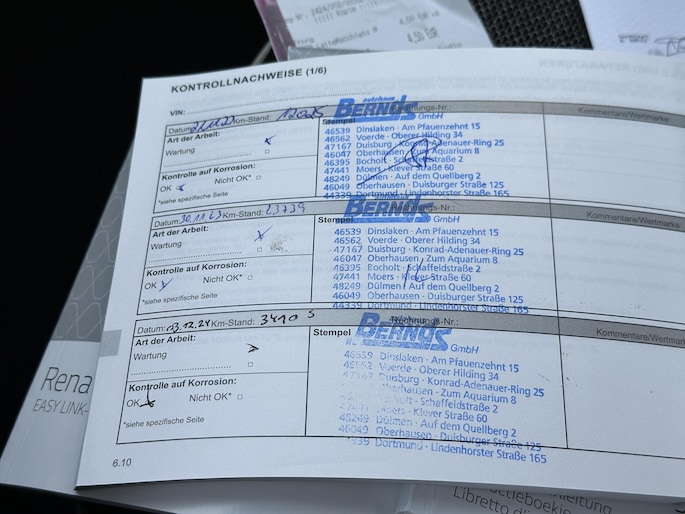 4,50 EUR
KONTROLLNACHWEISE (1/6)
VIN:
Datum: Km-Stand: 12025
Art der Arbeit:
Wartung
Kontrolle auf Korrosion:
OK Nicht OK*
*siehe spezifische Seite
Stempel
Kommentare/Wertmarke
autohaus
BERNDS
GmbH
46539 Dinslaken · Am Pfauenzehnt 15
46562 Voerde · Oberer Hilding 34
47167 Duisburg · Konrad-Adenauer-Ring 25
46047 Oberhausen · Zum Aquarium 8
46395 Bocholt · Schaffeldstraße 2
47441 Moers · Klever Straße 60
48249 Dülmen · Auf dem Quellberg 2
46049 Oberhausen · Duisburger Straße 125
44339 Dortmund · Lindenhorster Straße 165
Datum: 30.11.23 Km-Stand: 23739
Art der Arbeit:
Wartung
Kontrolle auf Korrosion:
OK Nicht OK*
*siehe spezifische Seite
Stempel
Kommentare/Wertmarke
BERNDS
GmbH
46539 Dinslaken · Am Pfauenzehnt 15
46562 Voerde · Oberer Hilding 34
47167 Duisburg · Konrad-Adenauer-Ring 25
46047 Oberhausen · Zum Aquarium 8
46395 Bocholt · Schaffeldstraße 2
47441 Moers · Klever Straße 60
48249 Dülmen · Auf dem Quellberg 2
46049 Oberhausen · Duisburger Straße 125
44339 Dortmund · Lindenhorster Straße 165
Datum: 03.12.24 Km-Stand: 34105
Art der Arbeit:
Wartung
Kontrolle auf Korrosion:
OK Nicht OK*
*siehe spezifische Seite
Stempel
Rechnungs-Nr.:
Kommentare/Wertmarke
BERNDS
GmbH
46539 Dinslaken · Am Pfauenzehnt 15
46562 Voerde · Oberer Hilding 34
47167 Duisburg · Konrad-Adenauer-Ring 25
Oberhausen · Zum Aquarium 8
Bocholt · Schaffeldstraße 2
Moers · Klever Straße 60
48249 Dülmen · Auf dem Quellberg 2
46049 Oberhausen · Duisburger Straße 125
Dortmund · Lindenhorster Straße 165
6.10
Rena
EASY LINK
Libretto di